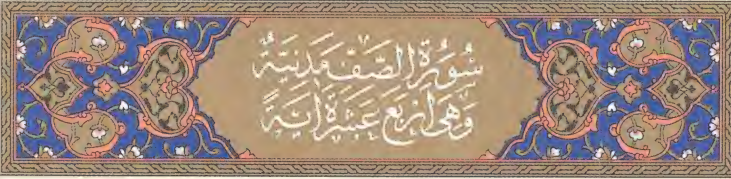 سُورَةُ الصَّفِّ مَدَنِيَّةٌ
وَهِيَ أَرْبَعَ عَشْرَةَ آيَةً